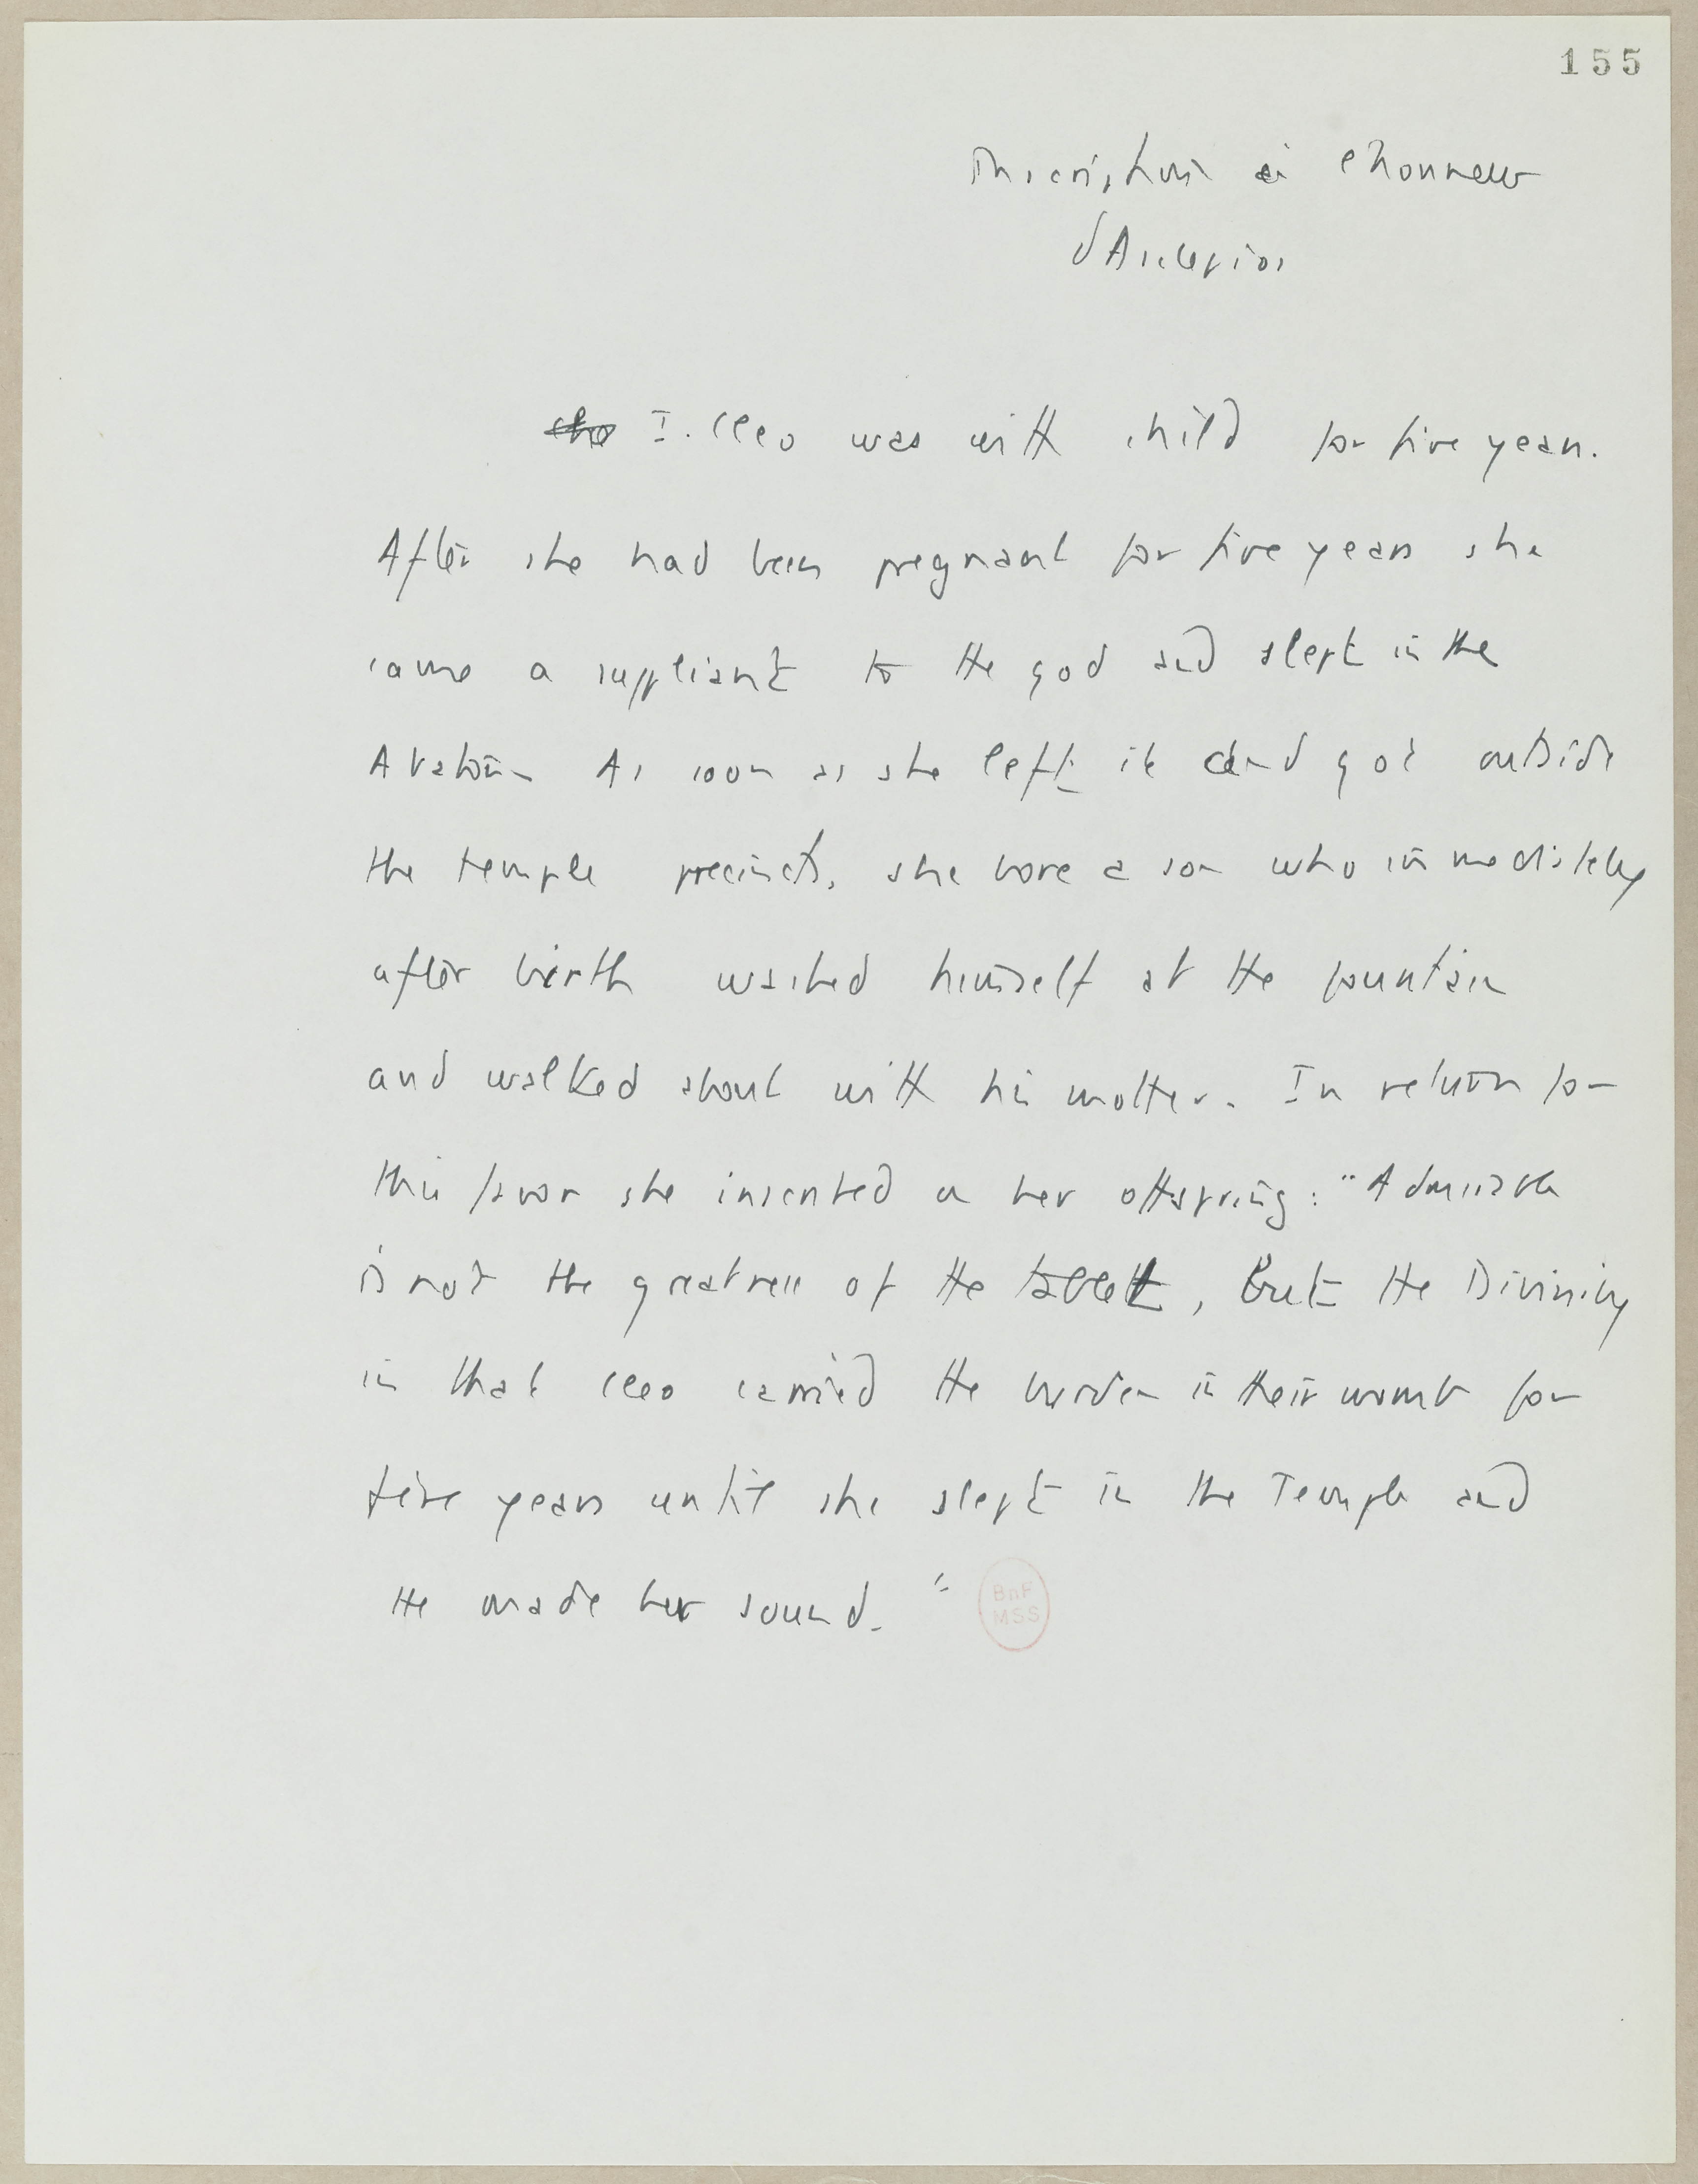 155
Inscription à l'honneur
d'Asclepios
she I. Cleo was with child for five years.
After she had been pregnant for five years she
came a suppliant to the god and slept in the
Abaton. As soon as she left it and got outside
the temple precincts, she bore a son who immediately
after birth washed himself at the fountain
and walked about with his mother. In return for
this favor she inscribed on her offspring: "Admirable
is not the greatness of the tablett, but the Divinity
in that Cleo carried the burden in their womb for
five years until she slept in the Temple and
He made her sound."
BnF
MSS